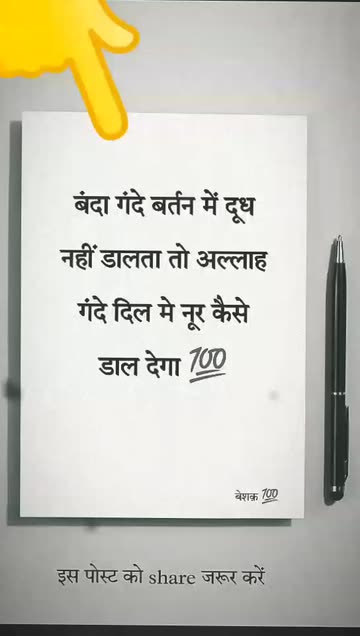 बंदा गंदे बर्तन में दूध
नहीं डालता तो अल्लाह
गंदे दिल मे नूर कैसे
डाल देगा 💯
बेशक 💯
इस पोस्ट को share जरूर करें